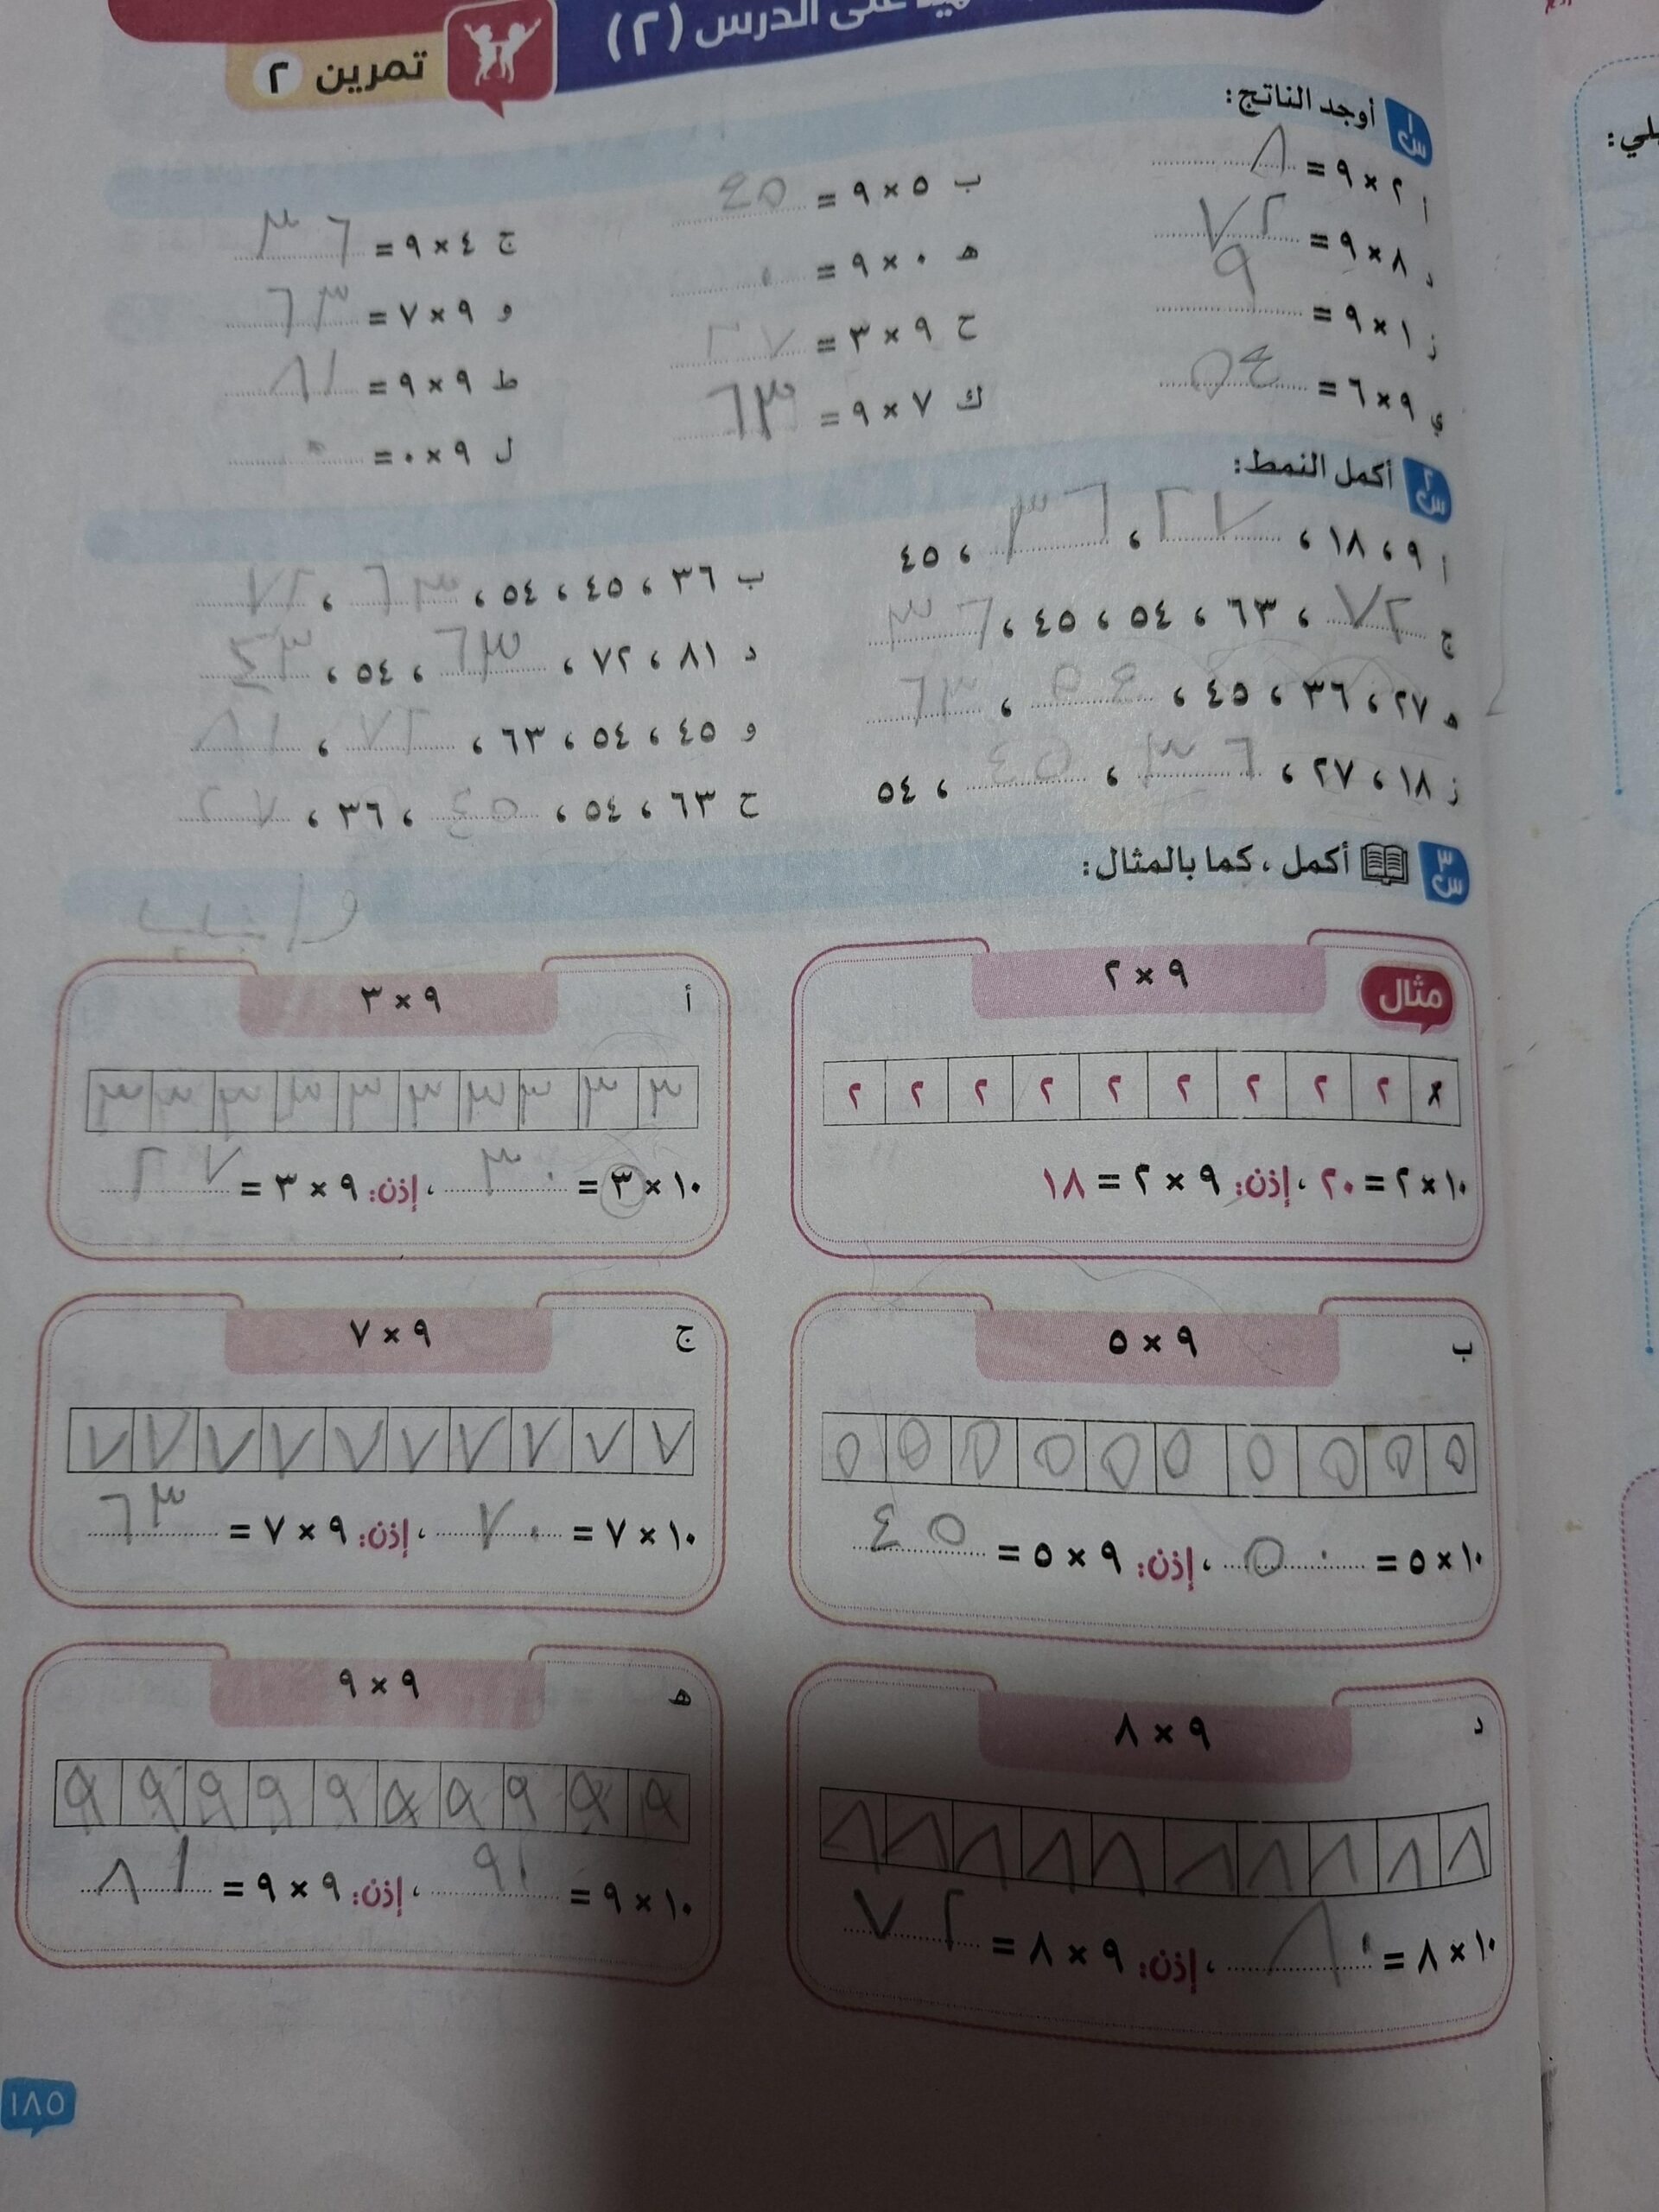 على الدرس (٢)
تمرين ٢
س١ أوجد الناتج:
أ ٢ × ٩ = ٨
ب ٥ × ٩ = ٤٥
ج ٤ × ٩ = ٣٦
د ٨ × ٩ = ٧٢
ه ٠ × ٩ = ٠
و ٩ × ٧ = ٦٣
ز ١ × ٩ = ٩
ح ٩ × ٣ =
ط ٩ × ٩ = ٨١
ي ٩ × ٦ = ٥٤
ك ٧ × ٩ = ٦٣
ل ٩ × ٠ = ٠
س٢ أكمل النمط:
أ ٩ ، ١٨ ، ٢٧ ، ٣٦ ، ٤٥
ب ٣٦ ، ٤٥ ، ٥٤ ، ٦٣ ،
ج ٧٢ ، ٦٣ ، ٥٤ ، ٤٥ ، ٣٦
د ٨١ ، ٧٢ ، ٦٣ ، ٥٤ ،
ه ٢٧ ، ٣٦ ، ٤٥ ، ، ٦٣
و ٤٥ ، ٥٤ ، ٦٣ ، ،
ز ١٨ ، ٢٧ ، ٣٦ ، ٤٥ ، ٥٤
ح ٦٣ ، ٥٤ ، ٤٥ ، ٣٦ ، ٢٧
س٣ أكمل ، كما بالمثال:
مثال
٩ × ٢
٢ ٢ ٢ ٢ ٢ ٢ ٢ ٢ ٢
١٠ × ٢ = ٢٠ ، إذن: ٩ × ٢ = ١٨
أ
٩ × ٣
٣ ٣ ٣ ٣ ٣ ٣ ٣ ٣ ٣ ٣
١٠ × ٣ = ٣٠ ، إذن: ٩ × ٣ = ٢٧
ب
٩ × ٥
٥ ٥ ٥ ٥ ٥ ٥ ٥ ٥ ٥ ٥
١٠ × ٥ = ٥٠ ، إذن: ٩ × ٥ = ٤٥
ج
٩ × ٧
٧ ٧ ٧ ٧ ٧ ٧ ٧ ٧ ٧ ٧
١٠ × ٧ = ٧٠ ، إذن: ٩ × ٧ = ٦٣
د
٩ × ٨
٨ ٨ ٨ ٨ ٨ ٨ ٨ ٨ ٨ ٨
١٠ × ٨ = ٨٠ ، إذن: ٩ × ٨ = ٧٢
ه
٩ × ٩
٩ ٩ ٩ ٩ ٩ ٩ ٩ ٩ ٩ ٩
١٠ × ٩ = ٩٠ ، إذن: ٩ × ٩ = ٨١
١٨٥
يلي: